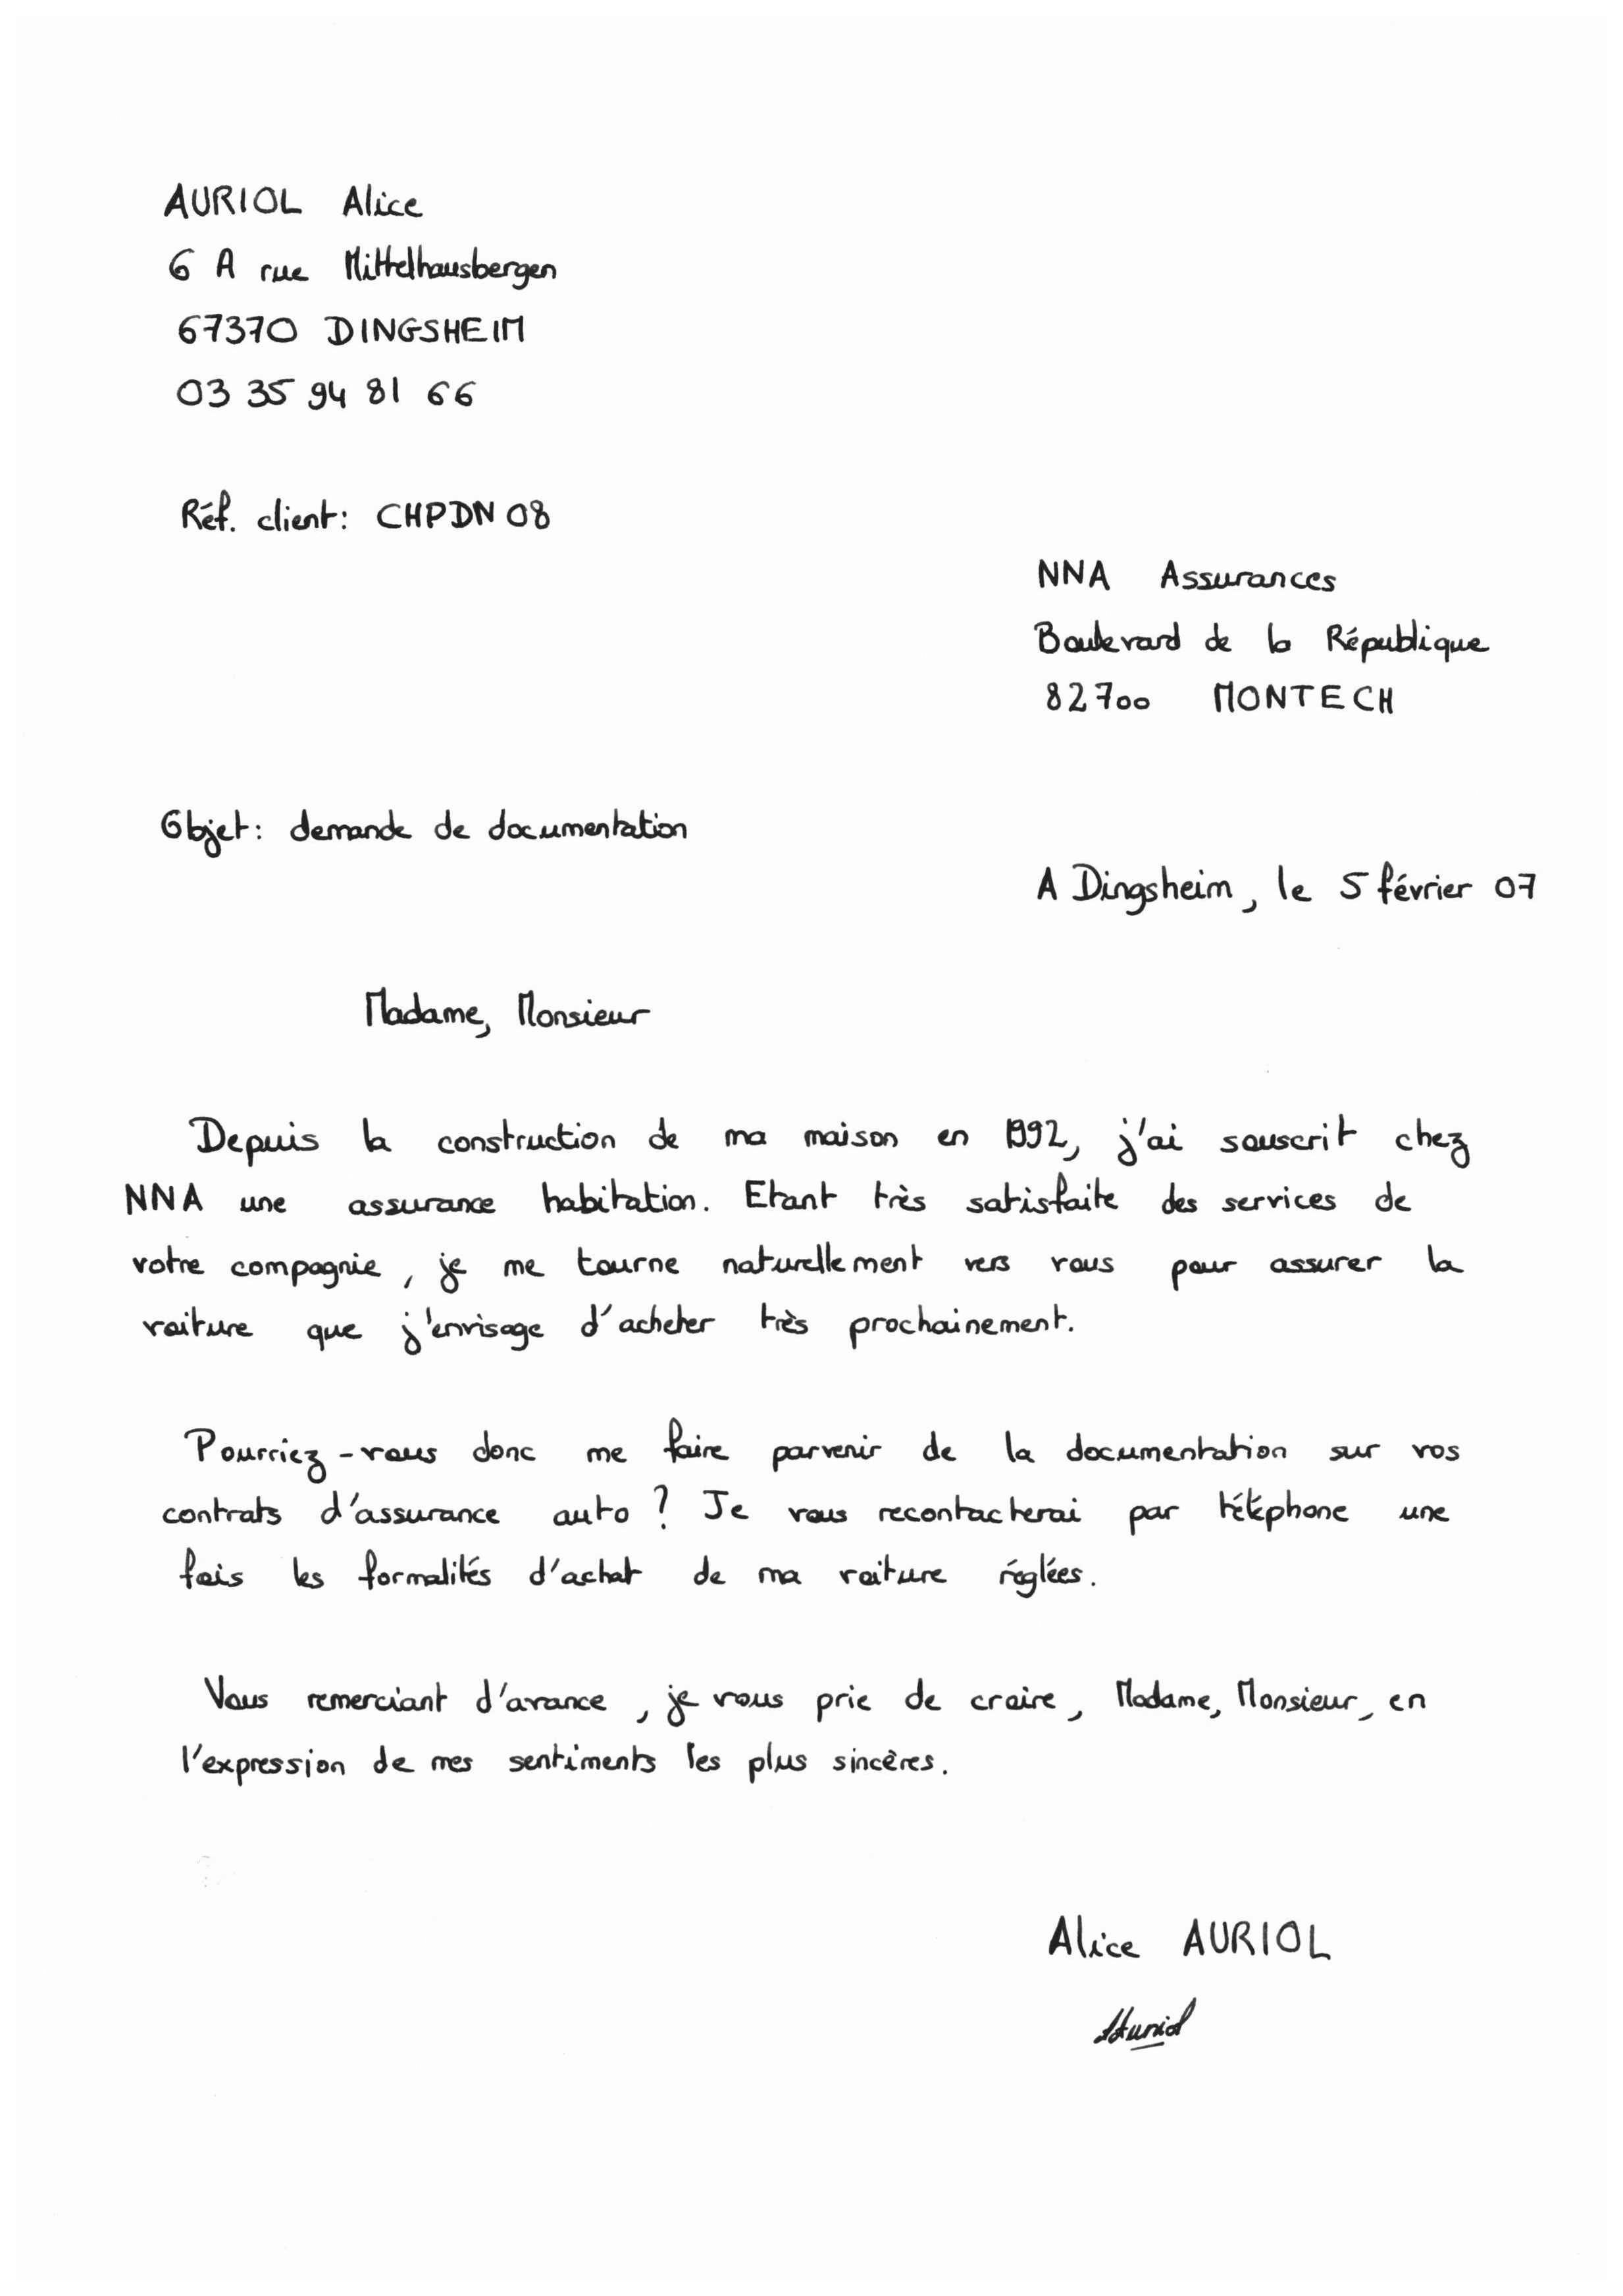 AURIOL Alice
6 A rue Mittelhausbergen
67370 DINGSHEIM
03 35 94 81 66
Réf. client: CHPDN08
NNA Assurances
Boulevard de la République
82700 MONTECH
Objet: demande de documentation
A Dingsheim, le 5 février 07
Madame, Monsieur
Depuis la construction de ma maison en 1992, j'ai souscrit chez
NNA une assurance habitation. Etant très satisfaite des services de
votre compagnie, je me tourne naturellement vers vous pour assurer la
voiture que j'envisage d'acheter très prochainement.
Pourriez-vous donc me faire parvenir de la documentation sur vos
contrats d'assurance auto ? Je vous recontacterai par téléphone une
fois les formalités d'achat de ma voiture réglées.
Vous remerciant d'avance, je vous prie de croire, Madame, Monsieur, en
l'expression de mes sentiments les plus sincères.
Alice AURIOL